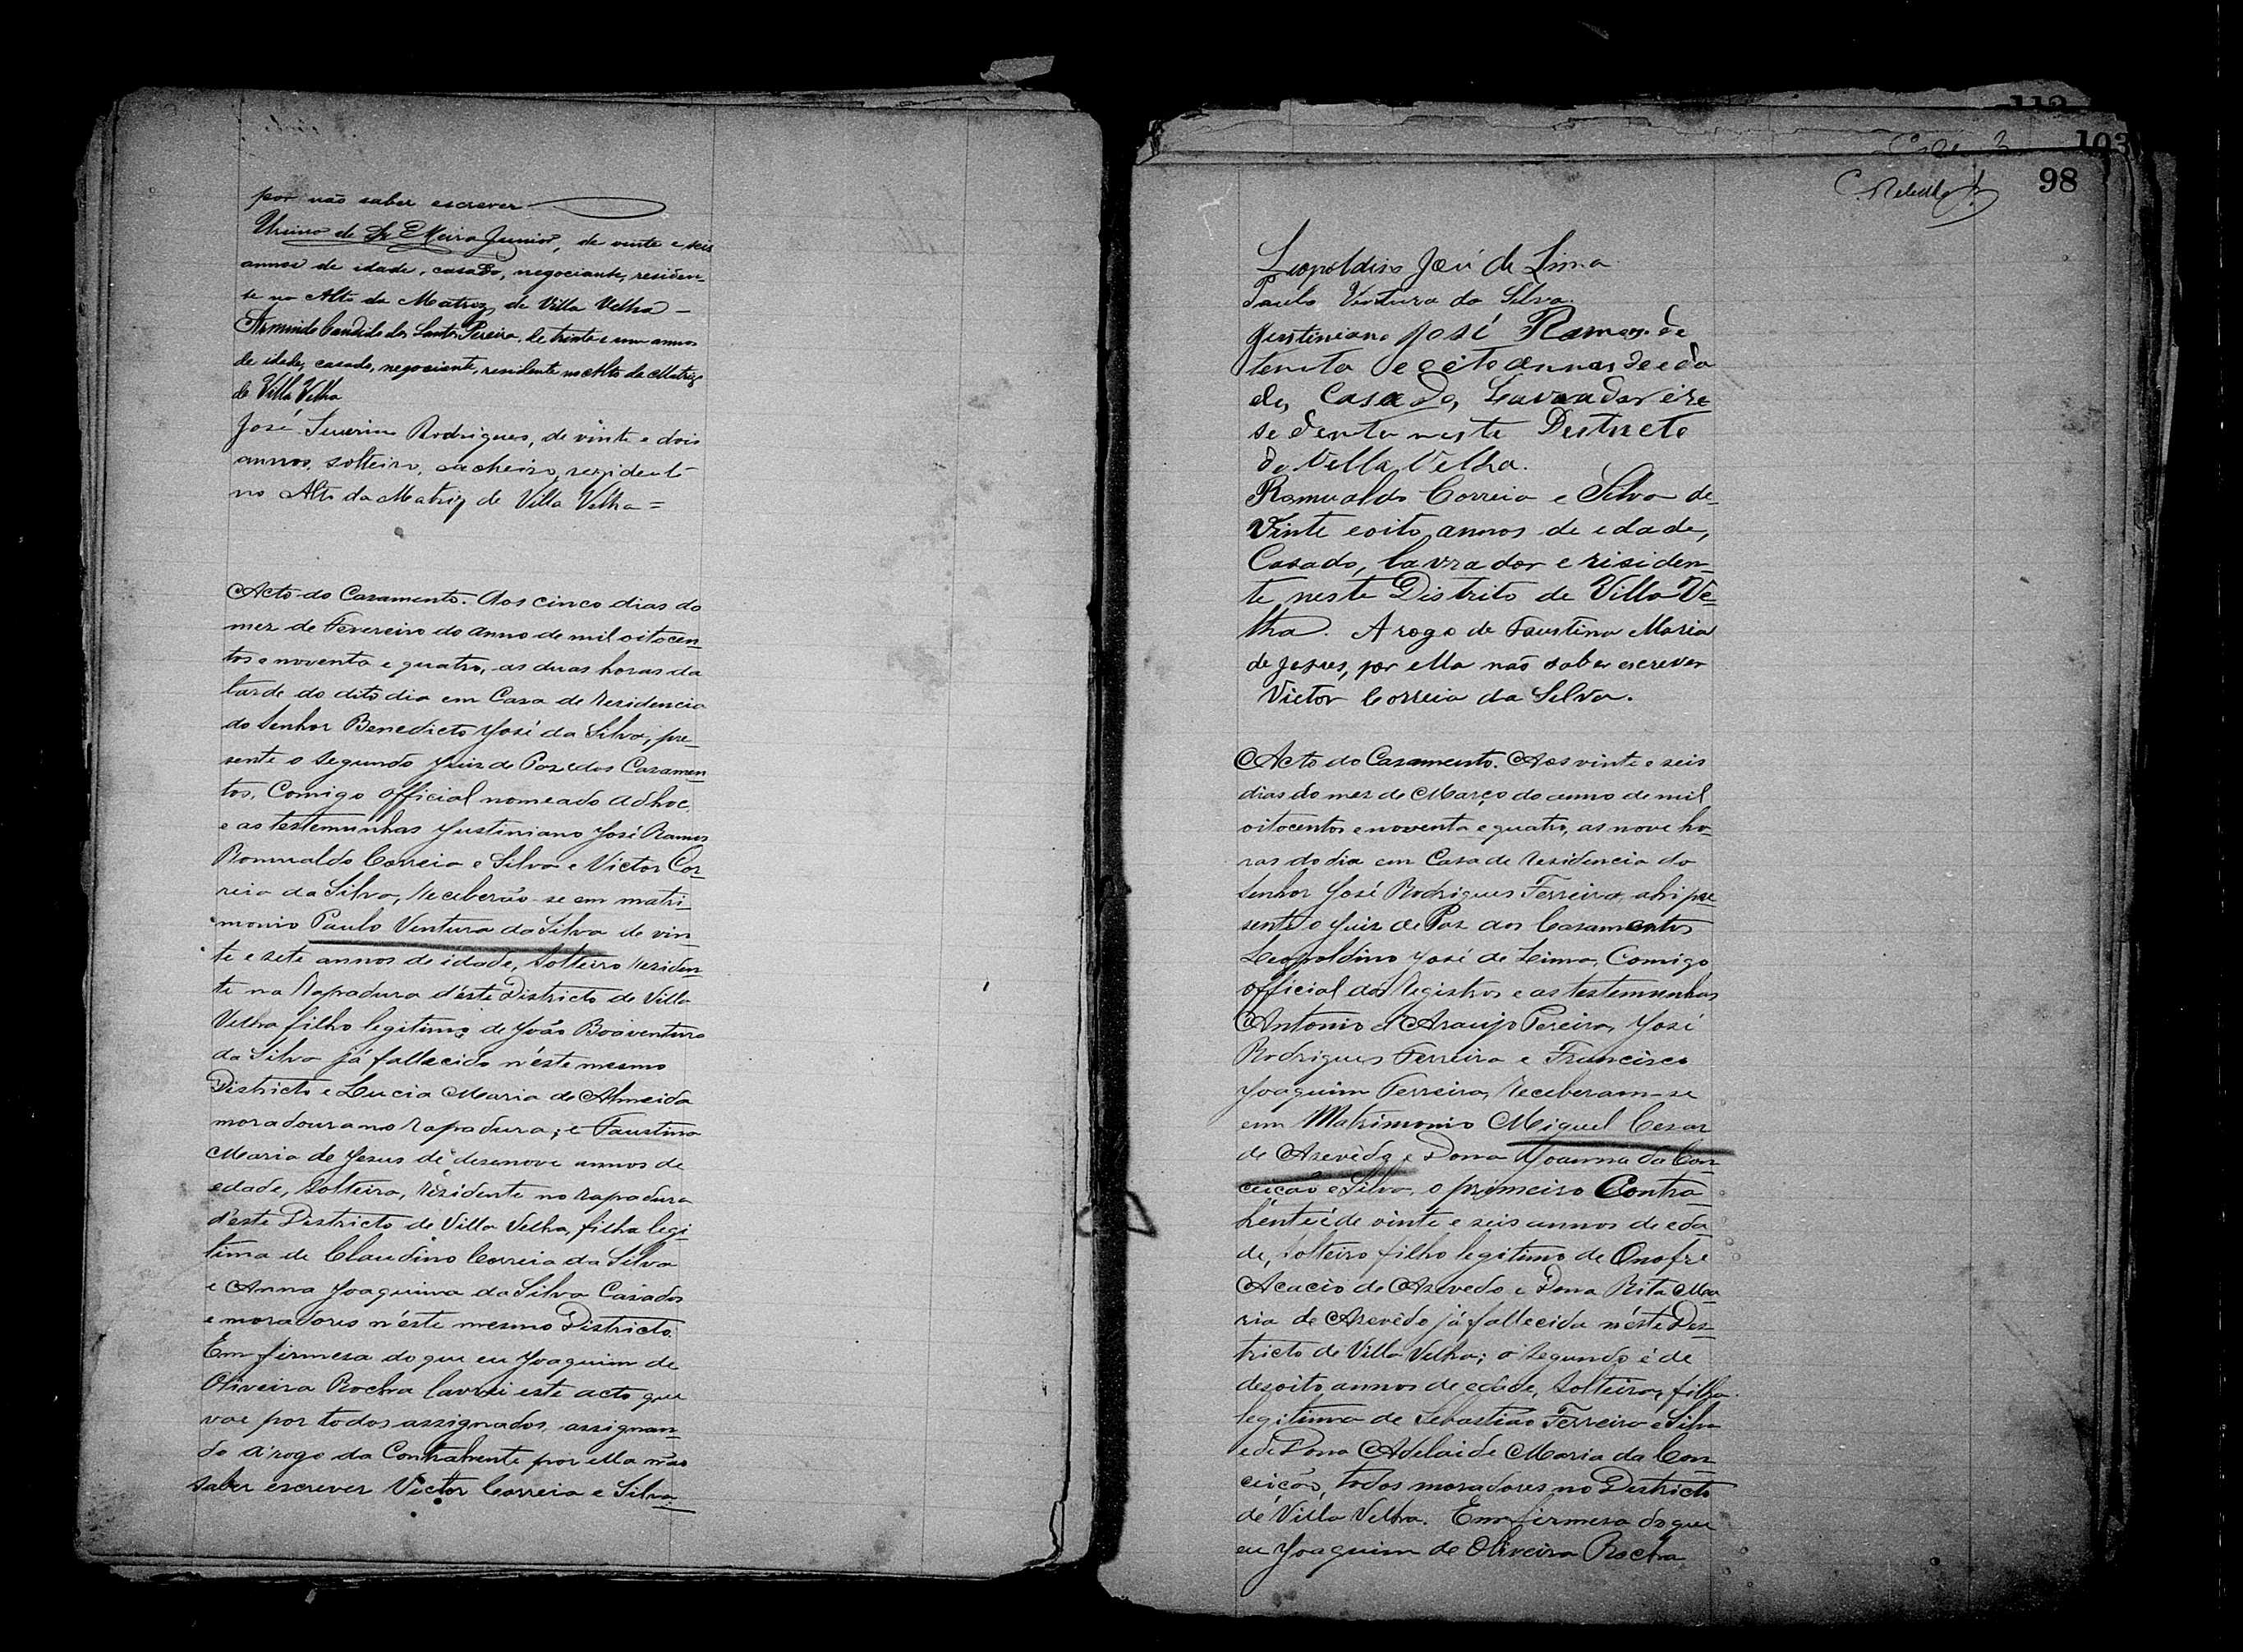 por não saber escrever
Ursino de Sz Meira Junior, de vinte e seis
annos de idade, casado, negociante, residen-
te no Alto da Matriz de Villa Velha -
Arminde Candido dos Santos Pereira, de trinta e um annos
de idade, casado, negociante, residente no Alto da Matriz
de Villa Velha
José Severino Rodrigues, de vinte e dois
annos, solteiro, cacheiro, rezidente
no Alto da Matriz de Villa Velha =
Acto do Casamento. Aos cinco dias do
mez de Fevereiro do anno de mil oitocen-
tos e noventa e quatro, as duas horas da
tarde do dito dia em Casa de Residencia
do Senhor Benedicto José da Silva, pre-
sente o segundo Juiz de Paz e dos Casamen-
tos, Comigo official nomeado adhoc
e as testemunhas Justiniano José Ramos
Romualdo Correia e Silva e Victor Cor-
reia da Silva, Receberão-se em matri-
monio Paulo Ventura da Silva de vin-
te e sete annos de idade, solteiro residen-
te na Rapadura d'éste Districto de Villa
Velha filho legitimo de João Boaventura
da Silva já fallecido n'éste mesmo
Districto e Lucia Maria de Almeida
moradoura no Rapadura; e Faustina
Maria de Jesus de desenove annos de
edade, solteira, residente no Rapadura
d'éste Districto de Villa Velha, filha legi-
tima de Claudino Correia da Silva
e Anna Joaquina da Silva Casados
e moradores n'éste mesmo Districto.
Em firmesa do que eu Joaquim de
Oliveira Rocha lavrei este acto que
vae por todos assignados, assignan-
do a'rogo da Contrahente por ella não
saber escrever Victor Correia e Silva
98
103
112
Leopoldino José de Lima
Paulo Ventura da Silva.
Justiniano José Ramos de
trinta e oito annos de eda
de, Casado, Lavrador e re
sidente neste Destricto
de Vella Velha.
Romualdo Correia e Silva de-
Vinte e oito annos de edade,
Casado, lavrador e residen-
te neste Distrito de Villa Ve-
lha. A rogo de Faustina Maria
de Jesus, por ella não saber escrever
Victor Correia da Silva.
Acto do Casamento. Aos vinte e seis
dias do mez de Março do anno de mil
oitocentos e noventa e quatro, as nove ho-
ras do dia em Casa de residencia do
Senhor José Rodrigues Ferreira, ahi pre-
sente o Juiz de Paz dos Casamentos
Leopoldino José de Lima, Comigo
official dos Registros e as testemunhas
Antonio d'Araujo Pereira, José
Rodrigues Ferreira e Francisco
Joaquim Ferreira, Receberam-se
em Matrimonio Miguel Cesar
de Azevêdo e Dona Joanna da Con-
ceição e Silva, o primeiro Contra
hente é de vinte e seis annos de eda
de, solteiro filho legitimo de Onofre
Acacio de Azevedo e Dona Rita Ma-
ria de Azevêdo já fallecida n'éste Des-
tricto de Villa Velha; o segundo é de
desoito annos de edade, solteira, filha
legitima de Sebastião Ferreira e Silva
e de Dona Adelaide Maria da Con-
ceição, todos moradores no Districto
de Villa Velha. Em firmesa do que
eu Joaquim de Oliveira Rocha